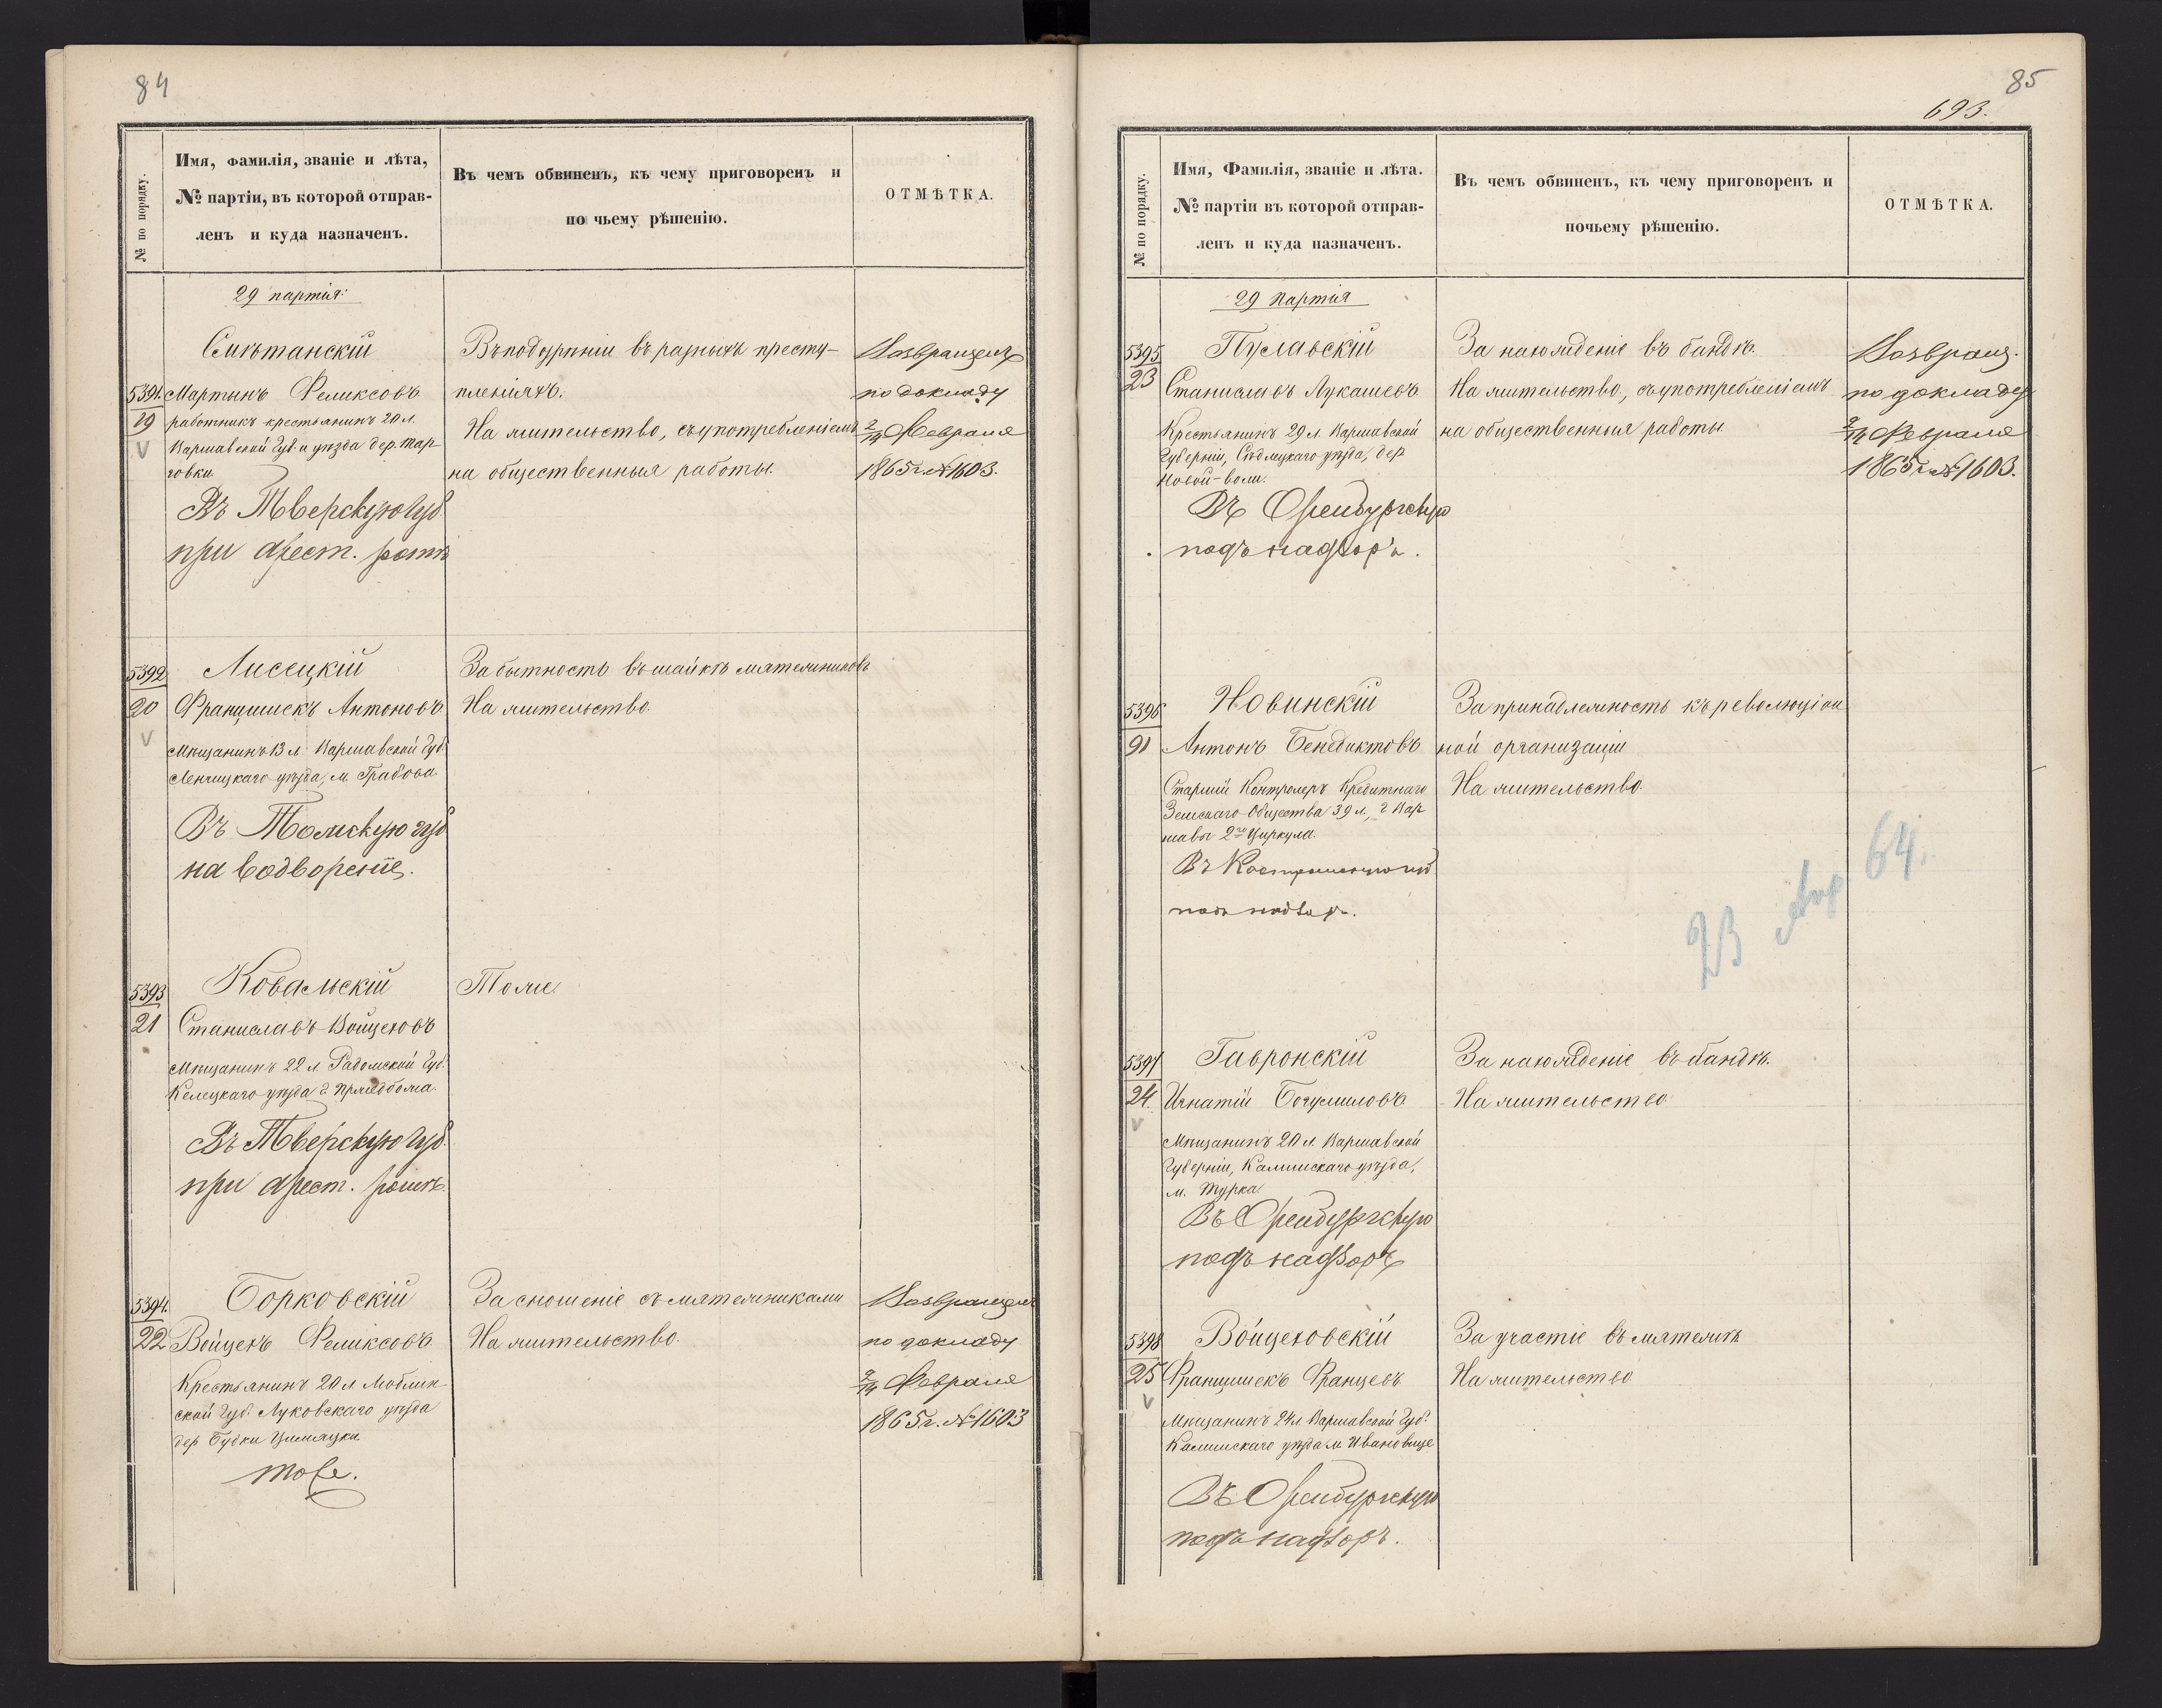 84
№ по порядку.
Имя, фамилія, званіе и лѣта,
№ партіи, въ которой отправ-
ленъ и куда назначенъ.
Въ чемъ обвиненъ, къ чему приговоренъ и
по чьему рѣшенію.
ОТМѢТКА.
29 партія:
5391.
19
V
Сикътанскій
Мартынъ Феликсовъ
работникъ крестьянинъ 20 л.
Варшавской Губ. и уѣзда дер. Тар-
говки
Въ Тверскую губ
при арест. ротѣ
Въ подозрѣніи въ разныхъ престу-
пленіяхъ.
На жительство, съ употребленіемъ
на общественныя работы.
Возвращенъ
по докладу
2/14 Февраля
1865 г. № 1603.
5392
20
V
Лисецкій
Францишекъ Антоновъ
Мѣщанинъ 13 л. Варшавской Губ
Ленчицкаго уѣзда, м. Грабова
Въ Томскую губ
на водвореніе.
За бытность въ шайкѣ мятежниковъ
На жительство.
5393
21
Ковальскій
Станиславъ Войцеховъ
Мѣщанинъ 22 л. Радомской Губ.
Келецкаго уѣзда г. Пржедбожа.
Въ Тверскую губ.
при арест. ротѣ.
Тоже.
5394.
22
Борковскій
Войцехъ Феликсовъ
Крестьянинъ 20 л. Люблин-
ской Губ. Луковскаго уѣзда
дер Будки
тоже.
За сношеніе съ мятежниками
На жительство.
Возвращенъ
по докладу
2/14 Февраля
1865 г. № 1603
85
693.
№ по порядку.
Имя, Фамилія, званіе и лѣта.
№ партіи въ которой отправ-
ленъ и куда назначенъ.
Въ чемъ обвиненъ, къ чему приговоренъ и
почьему рѣшенію.
ОТМѢТКА.
29 партія
5395
23
Пуславскій
Станиславъ Лукашевъ
Крестьянинъ 29 л. Варшавской
Губерніи, Сѣдлецкаго уѣзда, дер
Новой-воли.
Въ Оренбургскую
подъ надзоръ.
За нахожденіе въ бандѣ.
На жительство, съ употребленіемъ
на общественныя работы
Возвращ.
по докладу
2/14 Февраля
1865 г. № 1603.
5396
91
Новинскій
Антонъ Бенедиктовъ
Старшій Контролеръ Кредитнаго
Земскаго Общества 39 л., г Вар
шавы 2го Циркула.
Въ Костромскую губ
подъ надзор.
За принадлежность къ революціон
ной организаціи
На жительство.
23 Апр 64.
5397
24.
V
Гавронскій
Игнатій Богумиловъ
Мѣщанинъ 20 л. Варшавской
Губерніи, Калишскаго уѣзда,
м. Турка
Въ Оренбургскую
подъ надзоръ
За нахожденіе въ бандѣ.
На жительство.
5398
25
V
Войцеховскій
Францишекъ Францевъ
Мѣщанинъ 24 л. Варшавской Губ.
Калишскаго уѣзда м. Ивановице
Въ Оренбургскую
подъ надзоръ.
За участіе въ мятежѣ
На жительство